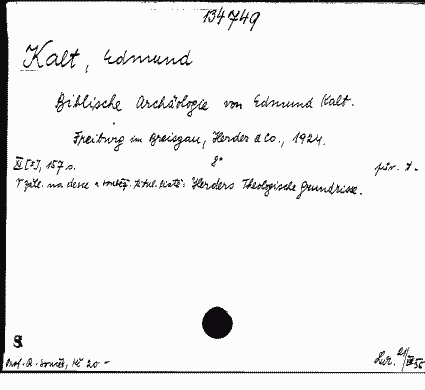 134749
Kalt, Edmund
Biblische Archäologie von Edmund Kalt.
Freiburg im Breisgau, Herder & Co., 1924.
XI [I], 157 s. 8° pův. v.
V záhl. na desce a titul. listě: Herders Theologische Grundrisse.
8
Prof. Kč 20 –
Lur. 21/IX 55